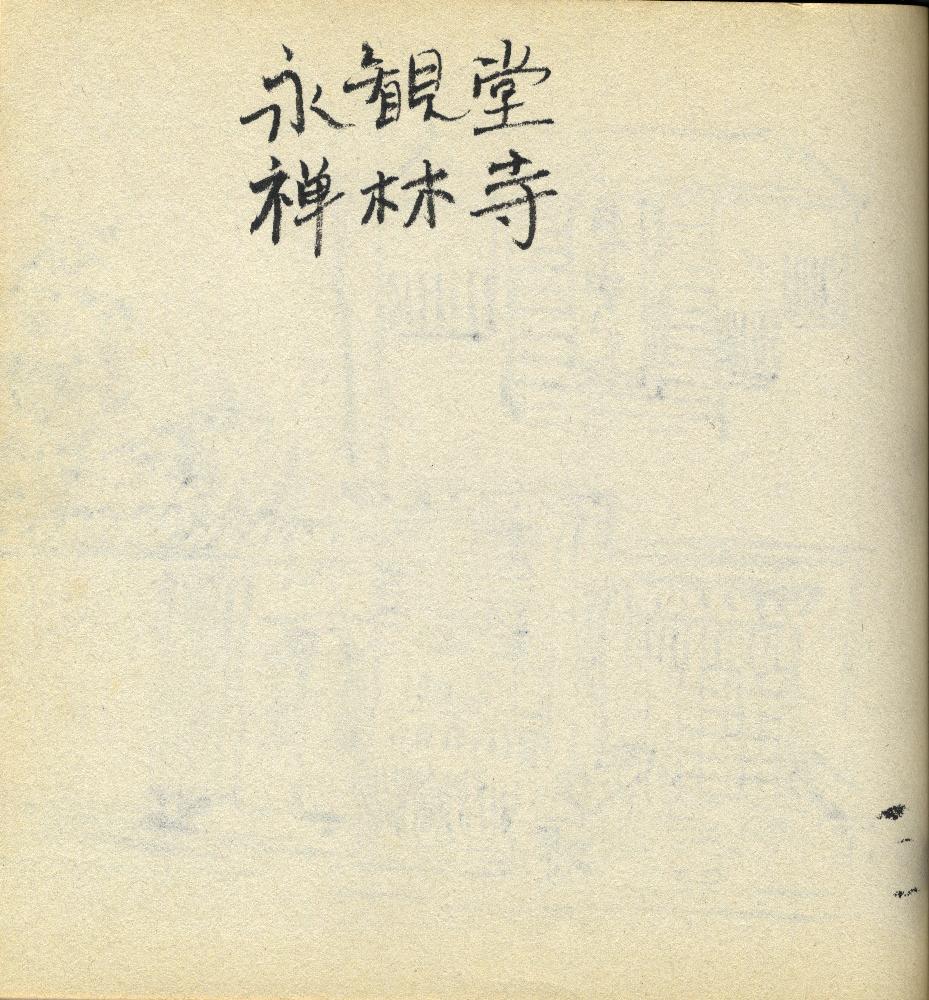 永観堂
禅林寺